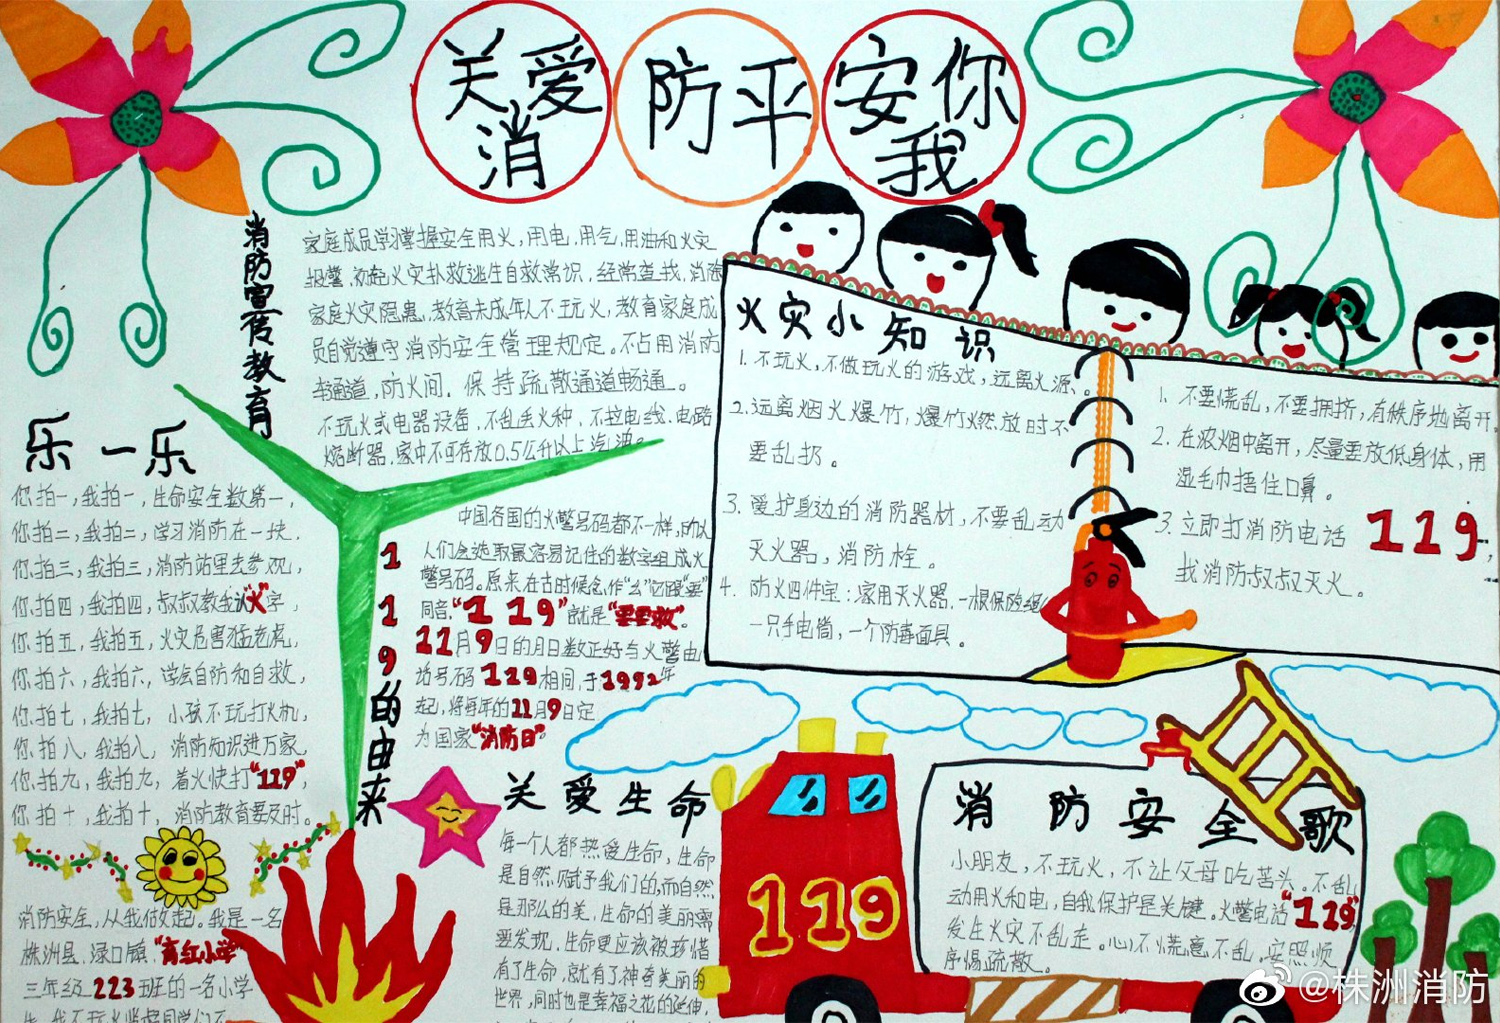 关爱
消
防平
安你
我
消防宣传教育
家庭成员学习掌握安全用火,用电,用气,用油和火灾
报警,初起火灾扑救逃生自救常识,经常查找,消除
家庭火灾隐患,教育未成年人不玩火,教育家庭成
员自觉遵守消防安全管理规定。不占用消防
车通道,防火间,保持疏散通道畅通。
不玩火或电器设备,不乱丢火种,不拉电线.电路
熔断器.家中不可存放0.5公升以上汽油。
乐一乐
你拍一,我拍一,生命安全数第一,
你拍二,我拍二,学习消防在一块,
你拍三,我拍三,消防站里去参观,
你拍四,我拍四,叔叔教我认"火"字,
你拍五,我拍五,火灾危害猛老虎,
你拍六,我拍六,学会自防和自救,
你拍七,我拍七,小孩不玩打火机,
你拍八,我拍八,消防知识进万家,
你拍九,我拍九,着火快打"119",
你拍十,我拍十,消防教育要及时。
消防安全,从我做起。我是一名
株洲县.渌口镇."育红小学"
三年级223班的一名小学
119的由来
中国各国的火警号码都不一样,
人们会选取最容易记住的数字组成火
警号码。原来在古时候念作"幺"它跟"要"
同音,"119"就是"要要救"。
11月9日的月日数正好与火警电
话号码119相同,于1992年
起,将每年的11月9日定
为国家"消防日"
关爱生命
每一个人都热爱生命,生命
是自然赋予我们的,而自然
是那么的美,生命的美丽需
要发现,生命更应该被珍惜
有了生命,就有了神奇美丽的
世界,同时也是幸福之花的延伸,
火灾小知识
1.不玩火,不做玩火的游戏,远离火源。
2.远离烟火爆竹,爆竹燃放时不
要乱扔。
3.爱护身边的消防器材,不要乱动
灭火器,消防栓。
4.防火四件宝:家用灭火器.一根保险绳
一只手电筒,一个防毒面具。
1.不要慌乱,不要拥挤,有秩序地离开.
2.在浓烟中离开,尽量要放低身体,用
湿毛巾捂住口鼻。
3.立即打消防电话119,
找消防叔叔灭火。
119
消防安全歌
小朋友,不玩火,不让父母吃苦头。不乱
动用火和电,自我保护是关键。火警电话"119"
发生火灾不乱走。心不慌意不乱,安照顺
序惕疏散。
@株洲消防